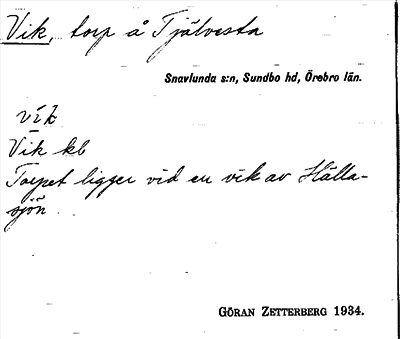 Vik, torp å Tjälvesta
Snavlunda s:n, Sundbo hd, Örebro län.
vīk
Vik kb
Torpet ligger vid en vik av Hålla-
sjön
GÖRAN ZETTERBERG 1934.